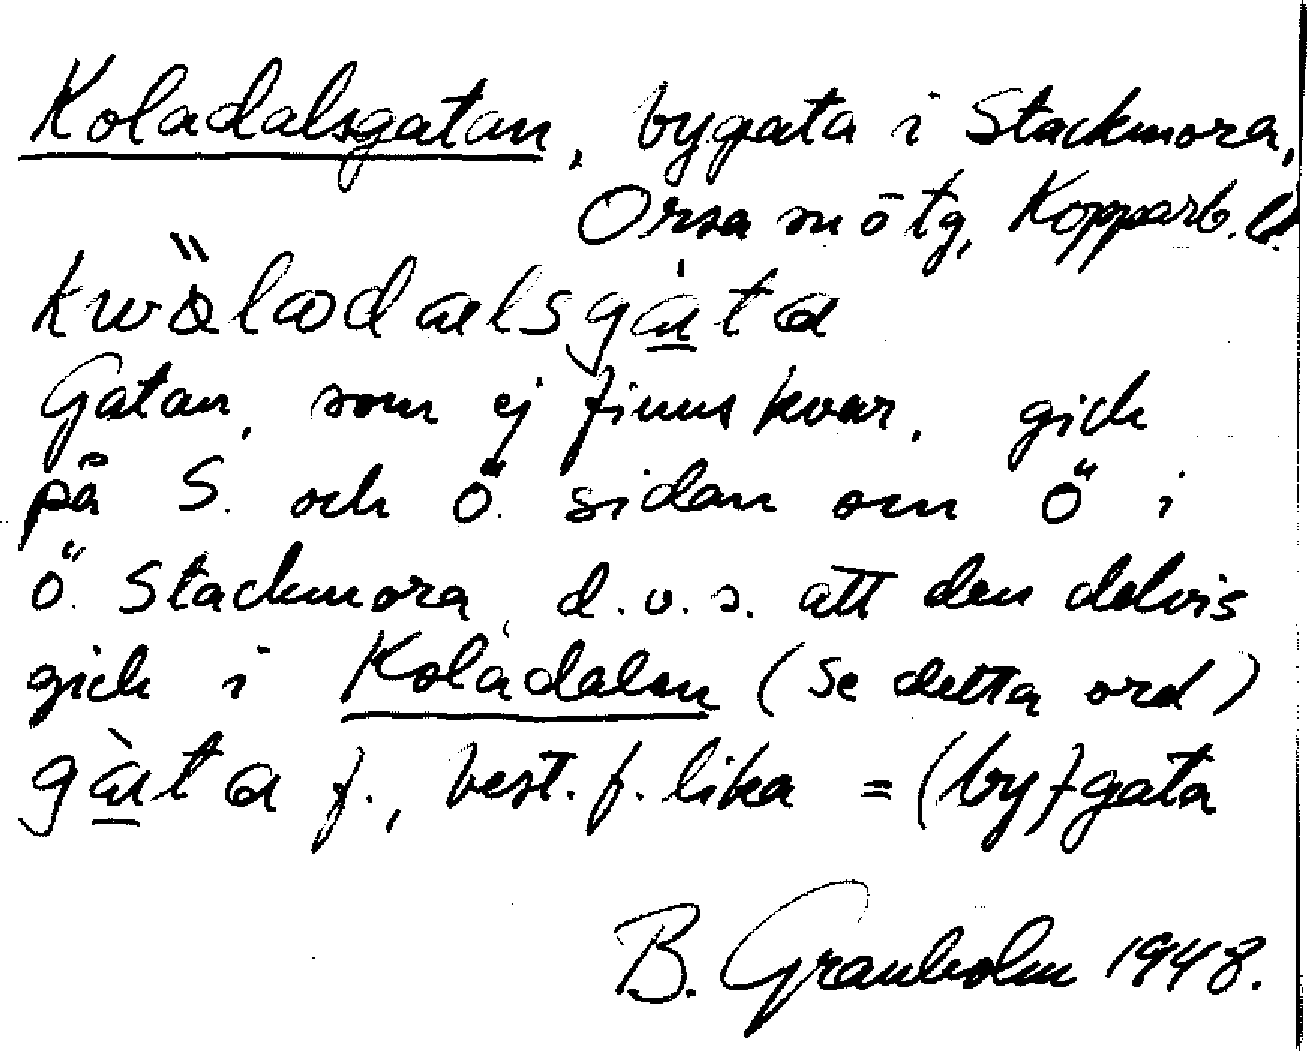 Koladalsgatan, bygata i Stackmora,
Orsa m ö tg, Kopparb. l.
Gatan, som ej finns kvar, gick
på S. och Ö. sidan om Ö i
Ö. Stackmora, d.v.s. att den delvis
gick i Koladalen (se detta ord)
gàta f., best. f. lika = (by)gata
B. Granholm 1948.